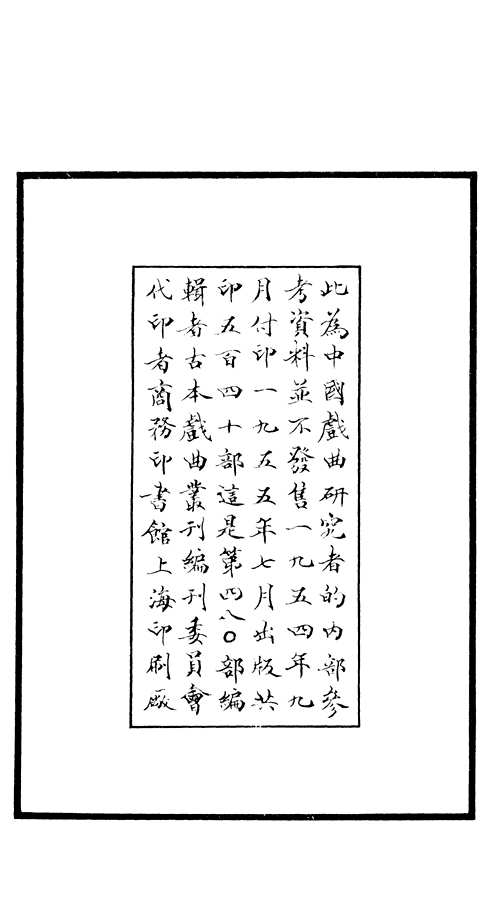 此為中國戲曲研究者的内部參
考資料並不發售一九五四年九
月付印一九五五年七月出版共
印五百四十部這是第四八〇部編
輯者古本戲曲叢刊編刊委員會
代印者商務印書館上海印刷廠